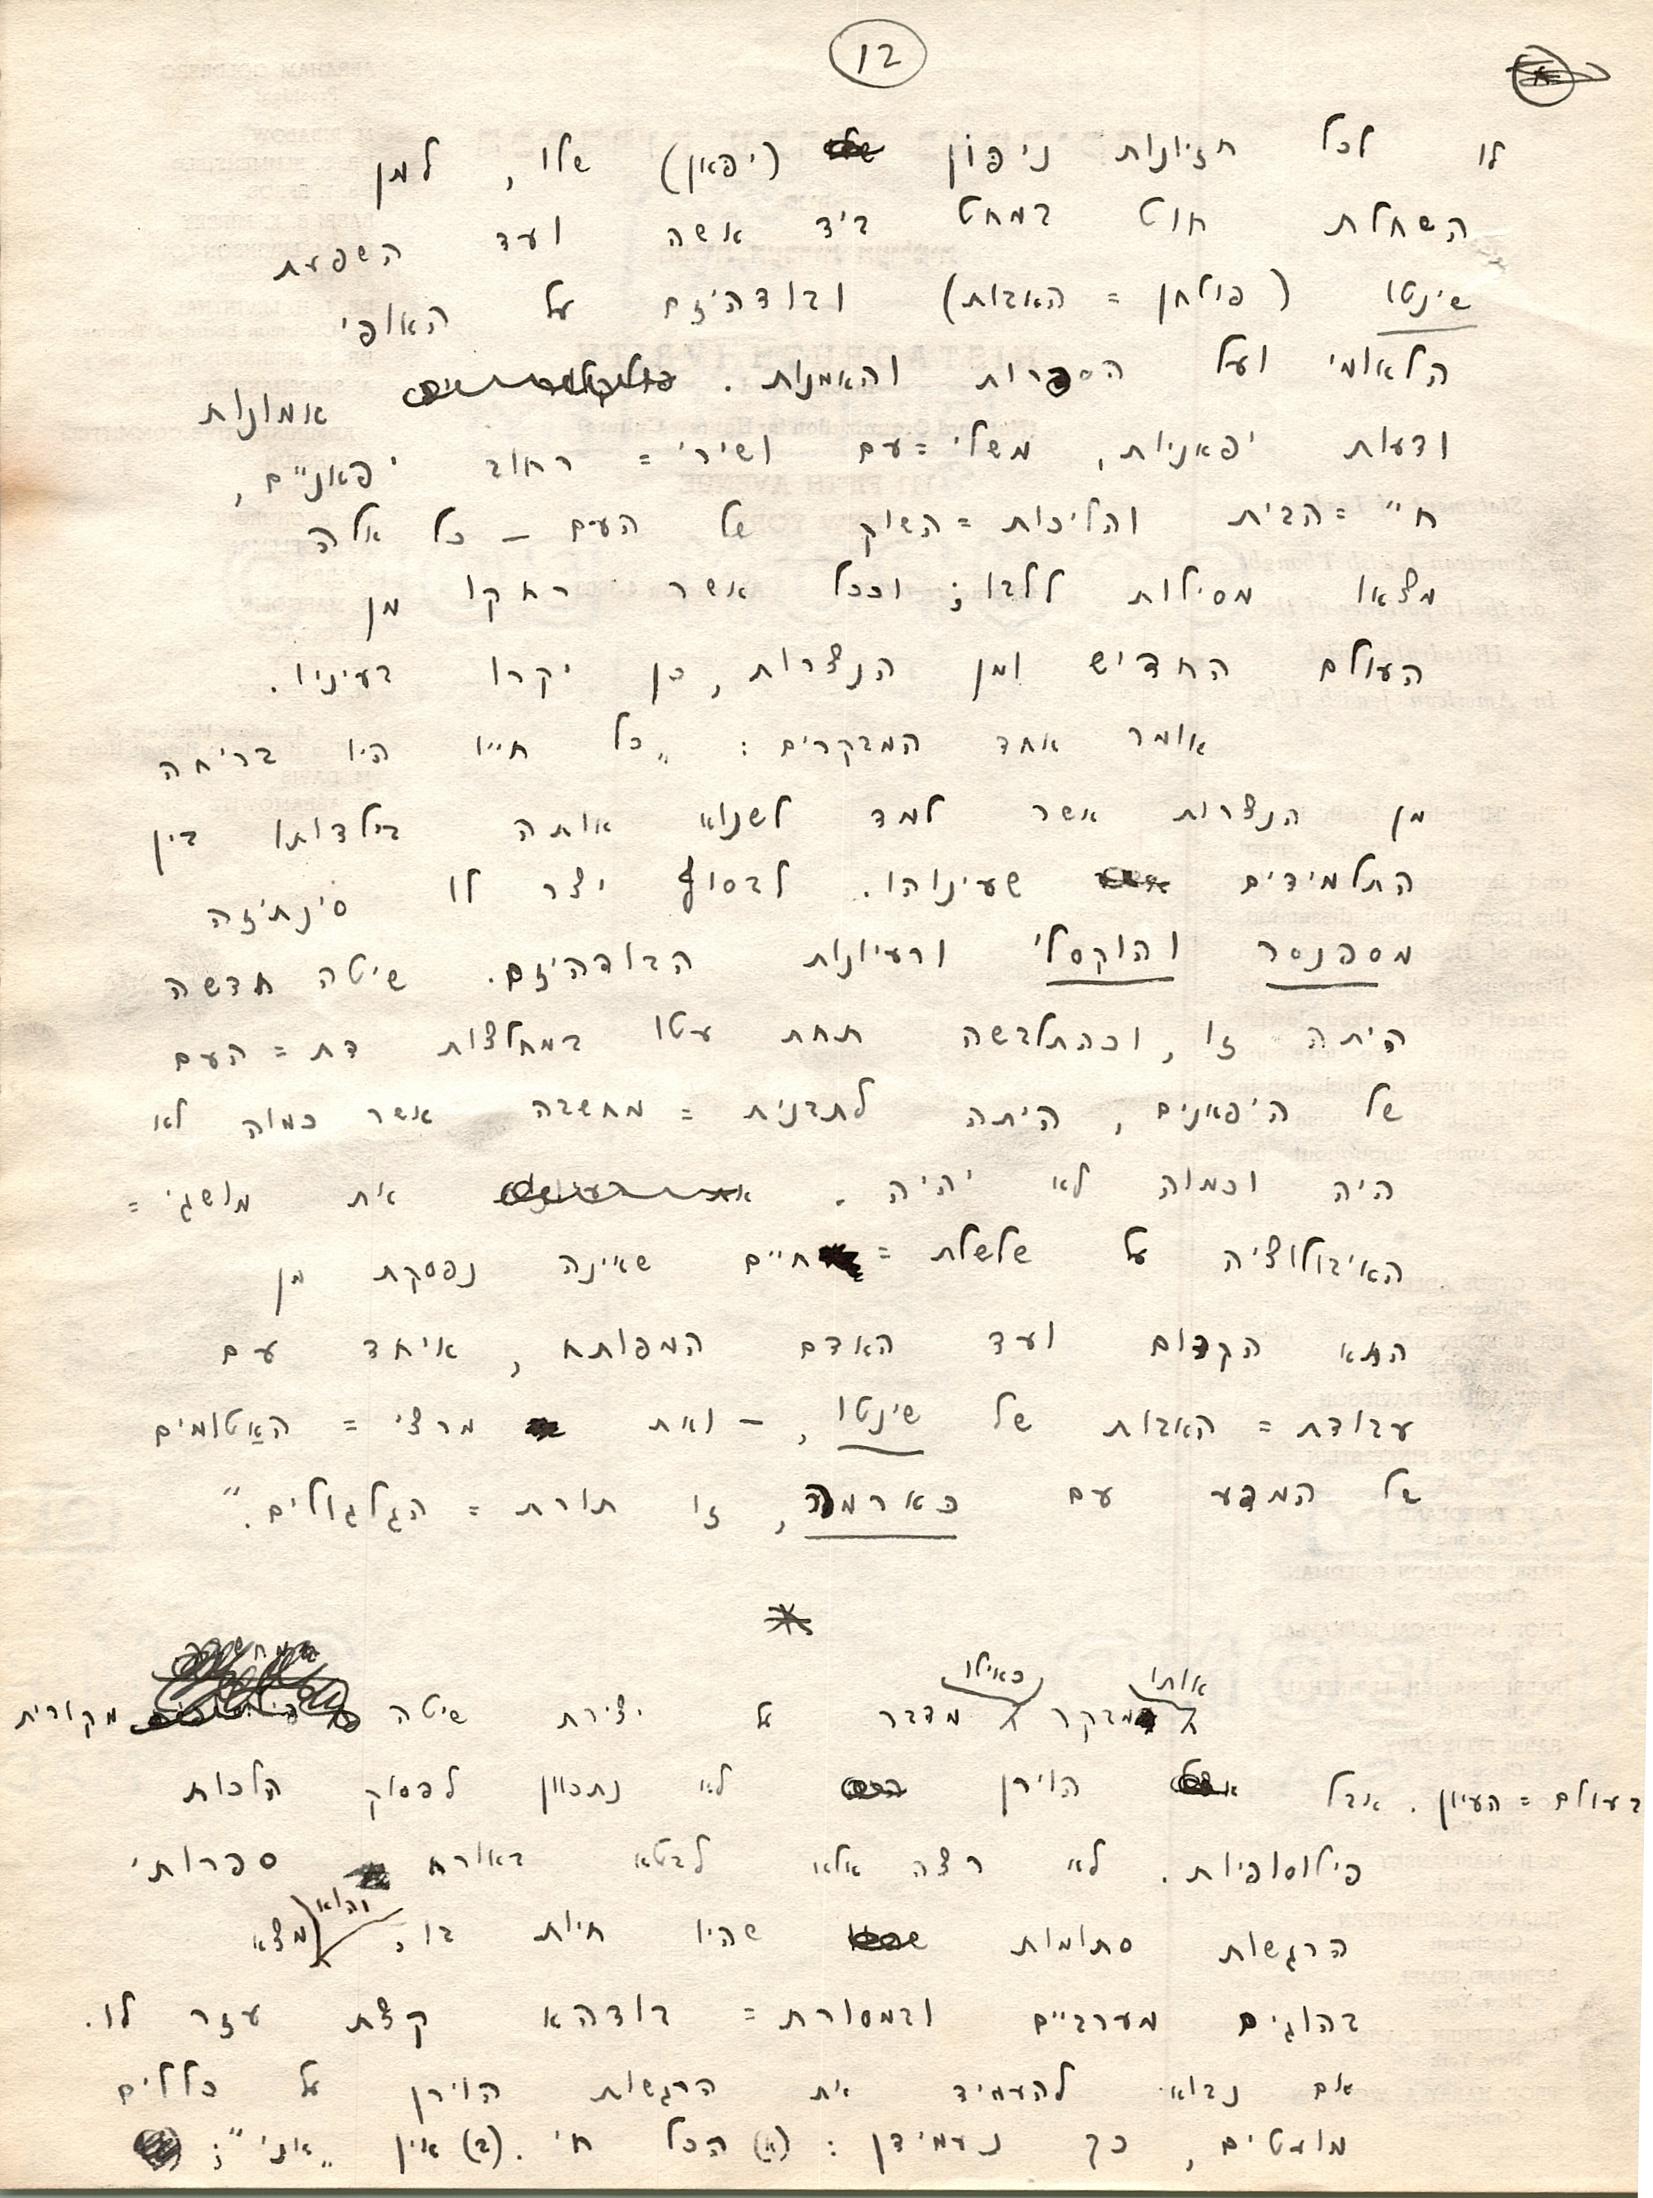 12
לו לכל חזיונות ניפון (יפאן) שלו, למן
השחלת חוט במחט ביד אשה ועד השפעת
שינטו (פולחן = האבות) ובודהיזם על האופי
הלאומי ועל הספרות והאמנות. אמונות
ודעות יפאניות, משלי = עם ושירי = רחוב יפאניים,
חיי = הבית והליכות = השוק של העם – כל אלה
מצאו מסילות ללבו; וככל אשר רחקו מן
העולם החדיש ומן הנצרות, כן יקרו בעיניו.
אומר אחד המבקרים: „כל חייו היו בריחה
מן הנצרות אשר למד לשנוא אותה בילדותו בין
התלמידים שעינוהו. לבסוף יצר לו סינתיזה
מספנסר והוקסלי ורעיונות הבודהיזם. שיטה חדשה
היתה זו, וכהתלבשה תחת עטו במחלצות דת = העם
של היפאנים, היתה לתבנית = מחשבה אשר כמוה לא
היה וכמוה לא יהיה. את מושגי =
האיבולוציה על שלשלת = חיים שאינה נפסקת מן
התא הקדום ועד האדם המפותח, איחד עם
עבודת = האבות של שינטו, – ואת מרצי = האַטומים
של המדע עם כארמה, זו תורת = הגלגולים."
*
אותו מבקר כאילו מדבר על יצירת שיטה מקורית
בעולם = העיון. אבל הוירן לא נתכוון לפסוק הלכות
פילוסופיות. לא רצה אלא לבטא באורח ספרותי
הרגשות סתומות שהיו חיות בו; והוא מצא
בהוגים מערביים ובמסורת = בודהא קצת עזר לו.
אם נבוא להעמיד את הרגשות הוירן על כללים
מועטים, כך נעמידן: (א) הכל חי. (ב) אין „אני";